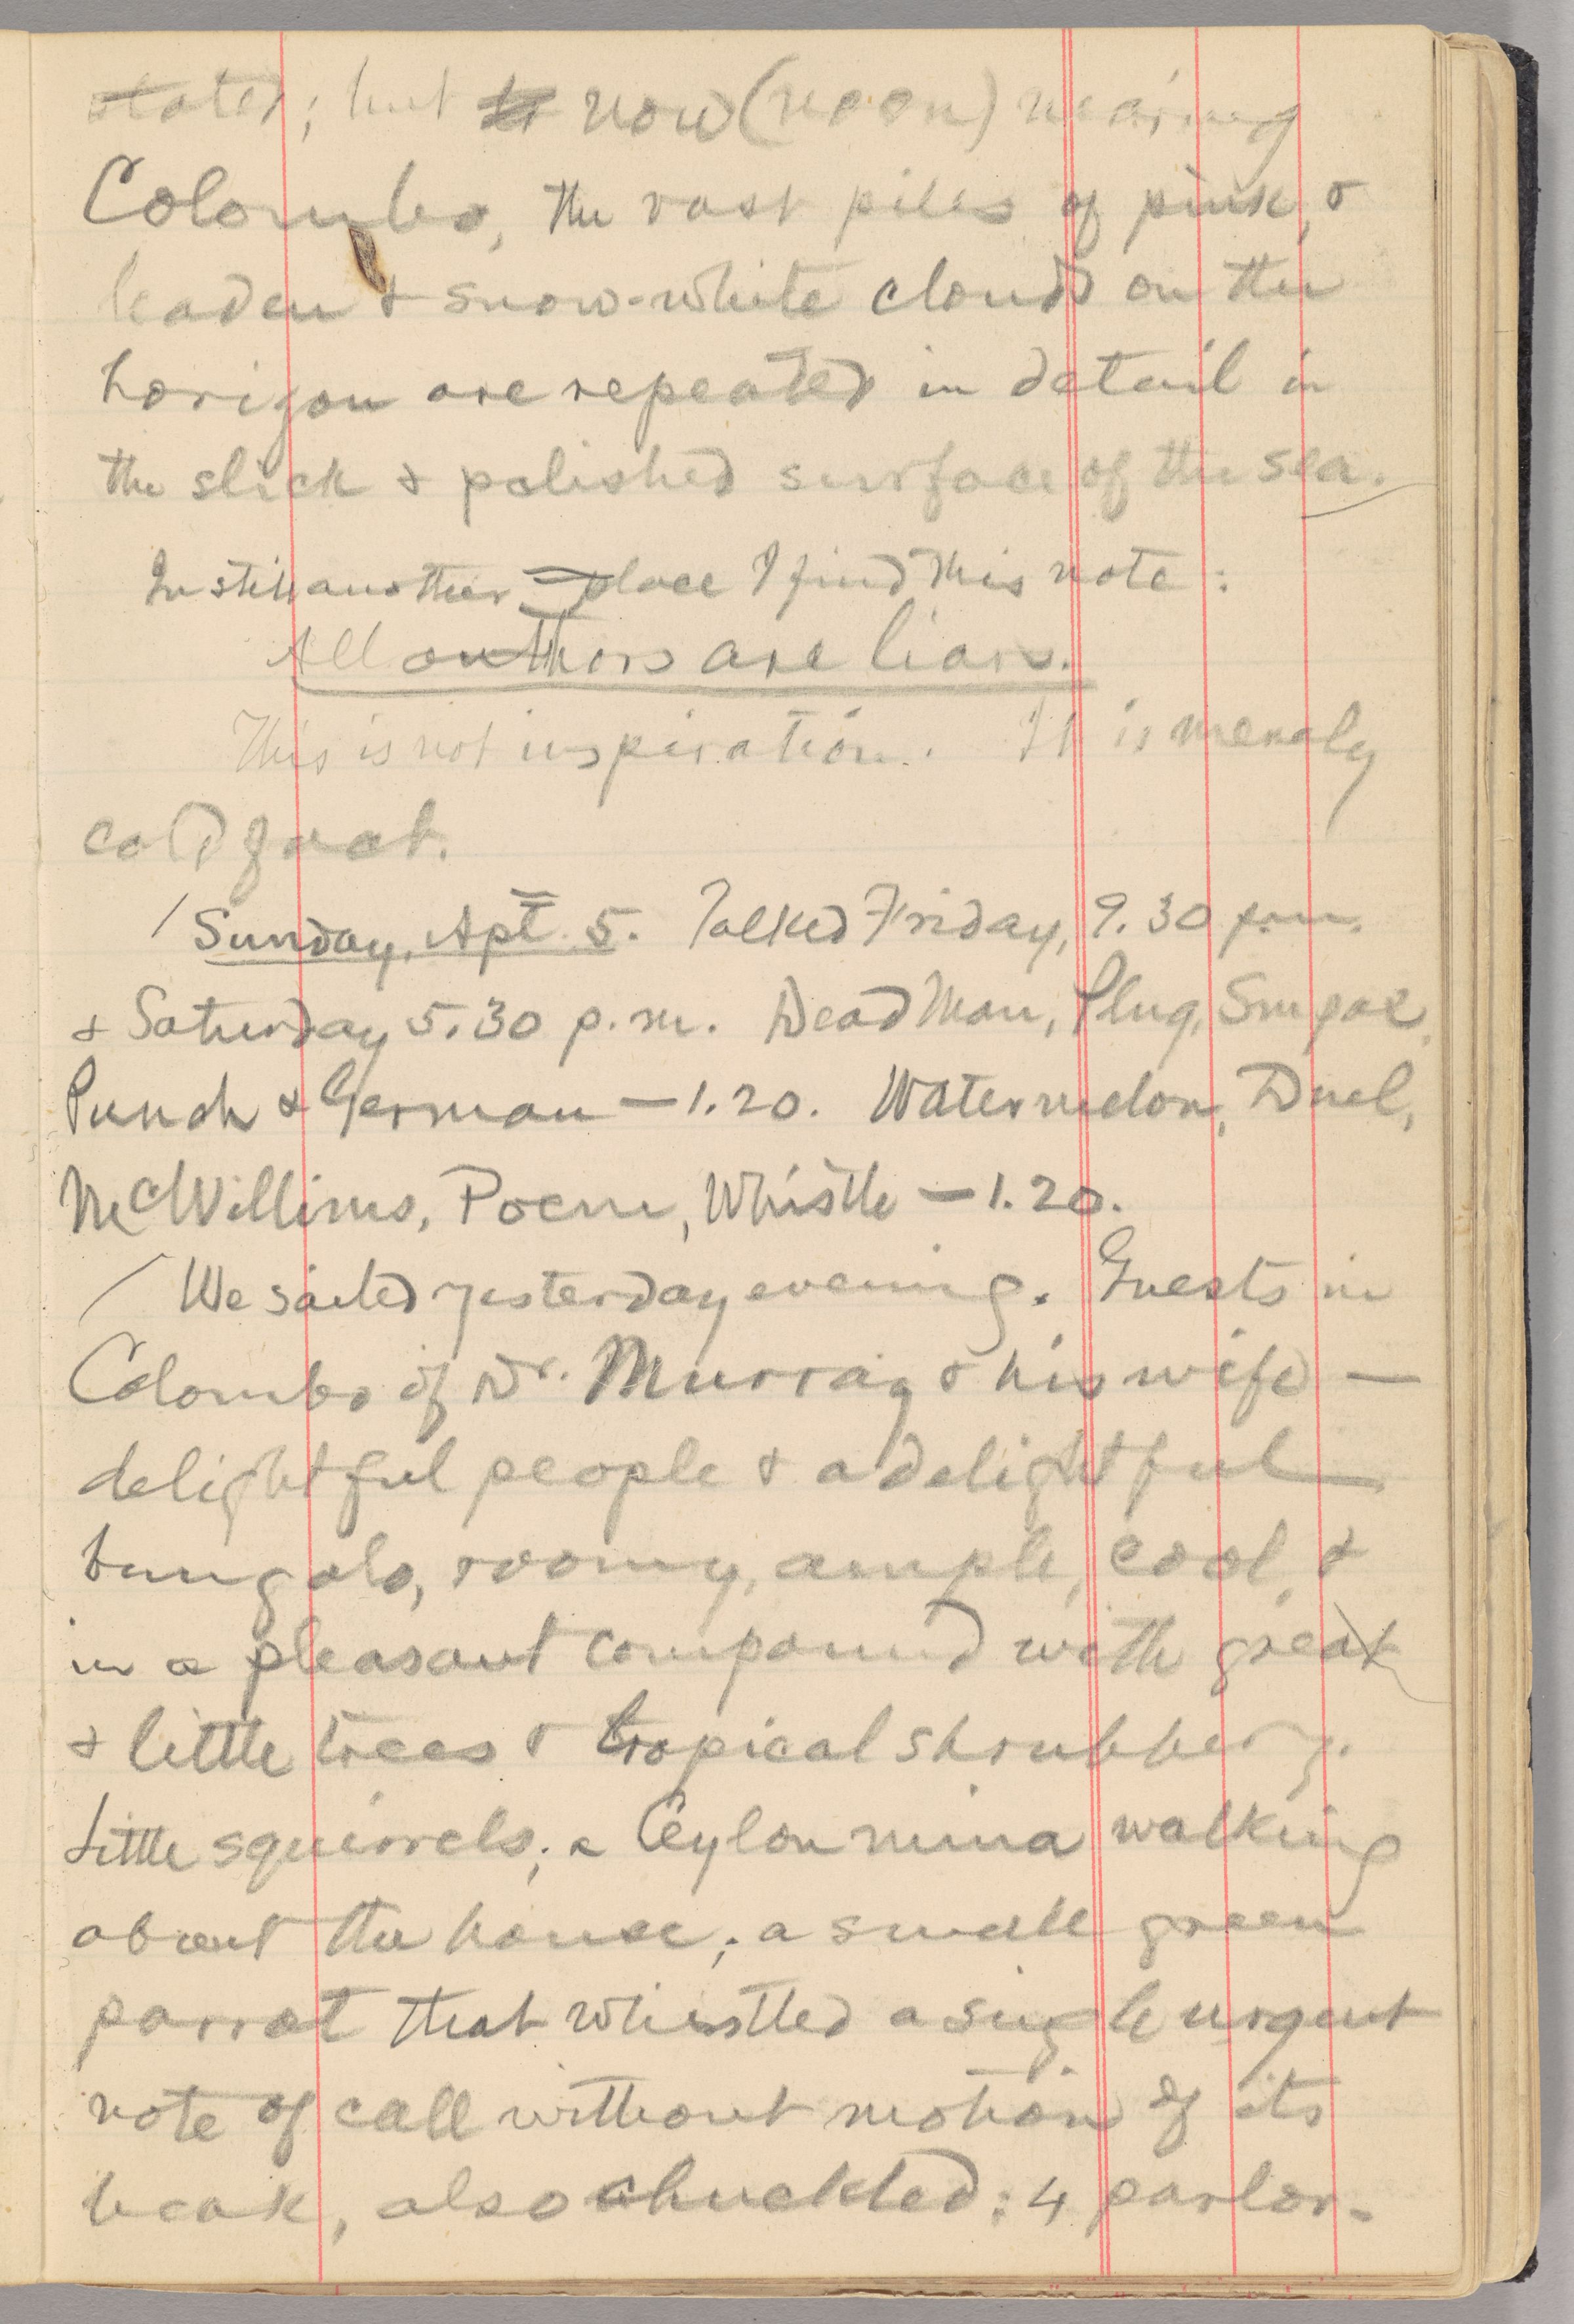 stated; but now (noon) nearing
Colombo, the vast piles of pink, &
leaden & snow-white clouds on the
horizon are repeated in detail in
the slick & polished surface of the sea.
In still another place I find this note:
All authors are liars.
This is not inspiration. It is merely
cold fact.
/ Sunday, Apl. 5. Talked Friday, 9.30 p.m.
& Saturday 5.30 p.m. Dead Man, Plug,
Punch & German — 1.20. Watermelon, Duel,
McWillims, Poem, Whistle — 1.20.
/ We sailed yesterday evening. Guests in
Colombo of Dr. Murray & his wife —
delightful people & a delightful
bungalo, roomy, ample, cool, &
in a pleasant compound with great
& little trees & tropical shrubbery.
Little squirrels; a Ceylon mina walking
about the house; a small green
parrot that whistled a single urgent
note of call without motion of its
beak, also chuckled; 4 parlor-